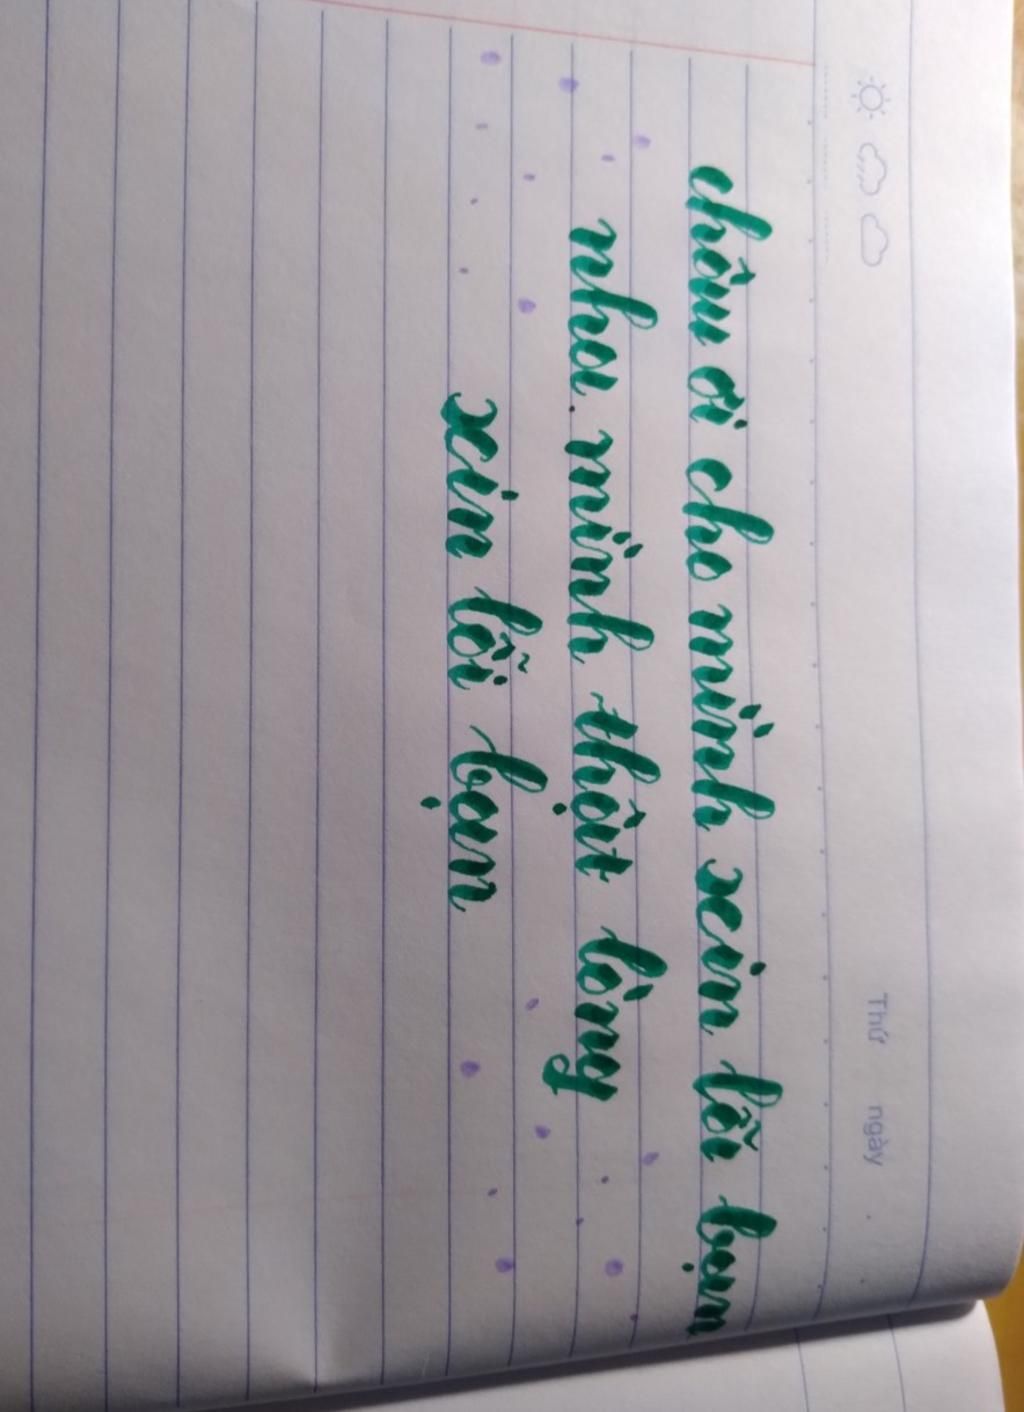 Thứ ngày
châu ơi cho mình xin lỗi bạn
nha. mình thật lòng
xin lỗi bạn